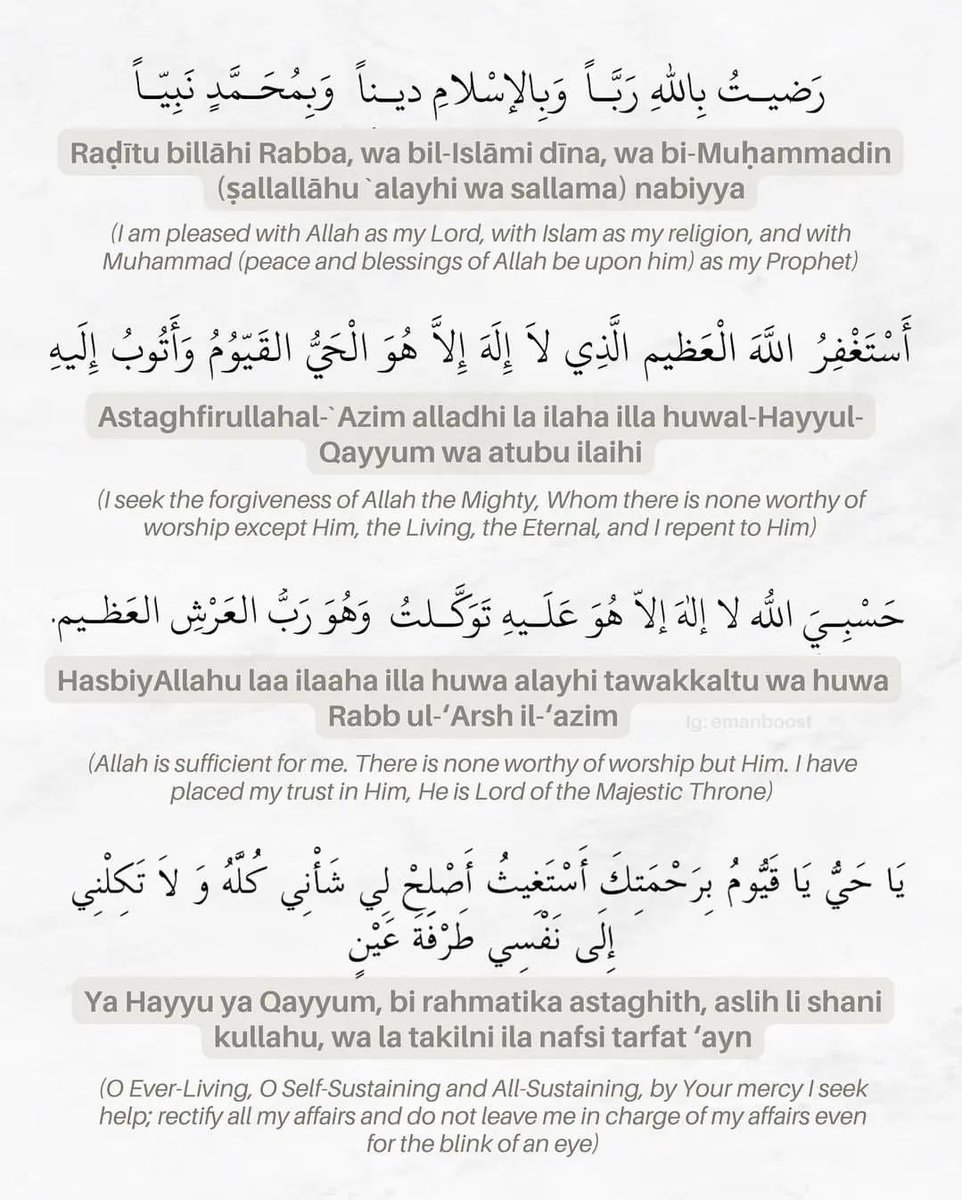 رَضيـتُ بِاللهِ رَبَّـاً وَبِالإسْلامِ ديـناً وَبِمُحَـمَّدٍ نَبِيّـاً
Raḍītu billāhi Rabba, wa bil-Islāmi dīna, wa bi-Muḥammadin
(ṣallallāhu `alayhi wa sallama) nabiyya
(I am pleased with Allah as my Lord, with Islam as my religion, and with
Muhammad (peace and blessings of Allah be upon him) as my Prophet)
أَسْتَغْفِرُ اللَّهَ الْعَظيم الَّذِي لاَ إِلَهَ إِلاَّ هُوَ الْحَيُّ القَيّوُمُ وَأَتُوبُ إِلَيهِ
Astaghfirullahal-`Azim alladhi la ilaha illa huwal-Hayyul-
Qayyum wa atubu ilaihi
(I seek the forgiveness of Allah the Mighty, Whom there is none worthy of
worship except Him, the Living, the Eternal, and I repent to Him)
حَسْبِـيَ اللهُ لا إلهَ إلاّ هُوَ عَلَـيهِ تَوَكَّـلتُ وَهُوَ رَبُّ العَرْشِ العَظـيم.
HasbiyAllahu laa ilaaha illa huwa alayhi tawakkaltu wa huwa
Rabb ul-‘Arsh il-‘azim
Ig: emanboost
(Allah is sufficient for me. There is none worthy of worship but Him. I have
placed my trust in Him, He is Lord of the Majestic Throne)
يَا حَيُّ يَا قَيُّومُ بِرَحْمَتِكَ أَسْتَغِيثُ أَصْلِحْ لِي شَأْنِي كُلَّهُ وَ لاَ تَكِلْنِي
إِلَى نَفْسِي طَرْفَةَ عَيْنٍ
Ya Hayyu ya Qayyum, bi rahmatika astaghith, aslih li shani
kullahu, wa la takilni ila nafsi tarfat ‘ayn
(O Ever-Living, O Self-Sustaining and All-Sustaining, by Your mercy I seek
help; rectify all my affairs and do not leave me in charge of my affairs even
for the blink of an eye)